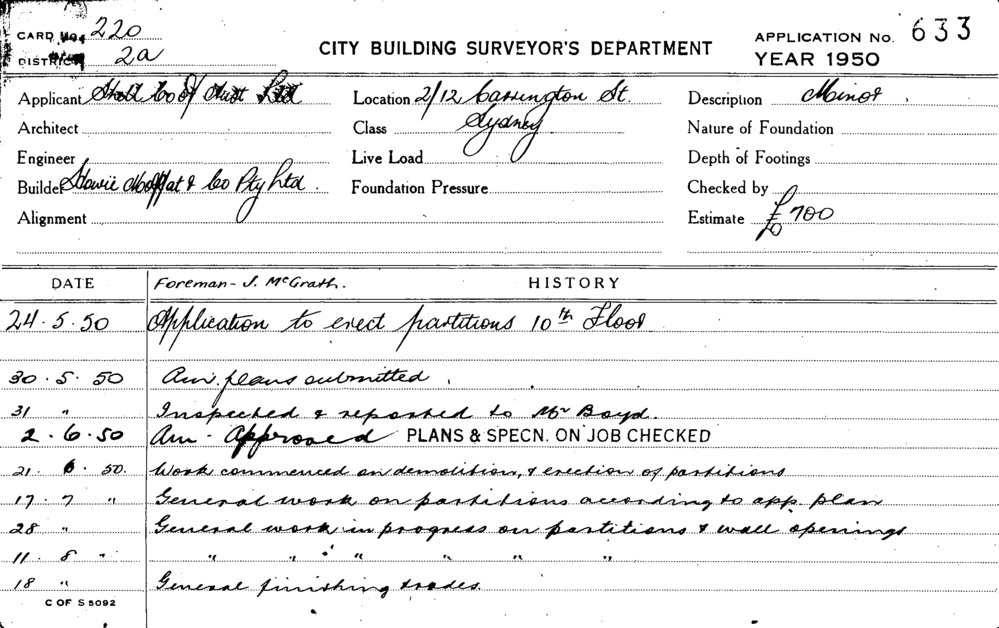 CARD No. 220
DISTRICT 2a
CITY BUILDING SURVEYOR'S DEPARTMENT
APPLICATION No. 633
YEAR 1950
Applicant Shell Co Of Aust Ltd
Location 2/12 Carrington St. Sydney
Description Minor
Architect
Class
Nature of Foundation
Engineer
Live Load
Depth of Footings
Builder Howie Moffat & Co Pty Ltd.
Foundation Pressure
Checked by
Alignment
Estimate £700
DATE
Foreman - J. McGrath.
HISTORY
24.5.50 Application to erect partitions 10th Floor
30.5.50 Am. plans submitted.
31 " Inspected & reported to Mr Boyd.
2.6.50 Am - Approved PLANS & SPECN. ON JOB CHECKED
21.6.50. Work commenced on demolition, & erection of partitions
17.7 " General work on partitions according to app. plan
28 " General work in progress on partitions & wall openings
11.8 " " " " " " "
18 " General finishing trades.
C OF S 5092